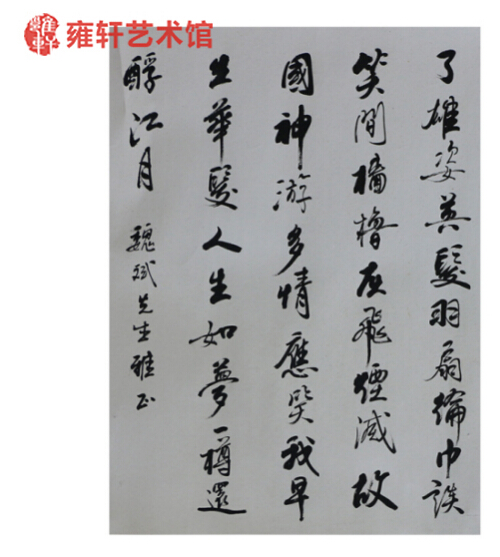 雍轩艺术馆
了雄姿英髮羽扇綸巾談
笑間檣櫓灰飛煙滅故
國神游多情應笑我早
生華髮人生如夢一樽還
酹江月
魏斌先生雅正